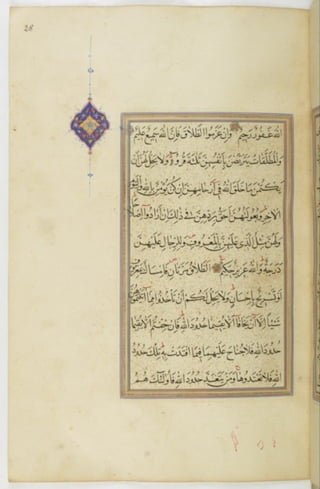 28
الله غفور رحيم وإن عزموا الطلاق فإن الله سميع عليم
والمطلقات يتربصن بأنفسهن ثلثة قروء ولا يحل لهن أن
يكتمن ما خلق الله في أرحامهن إن كن يؤمن بالله واليوم
الآخر وبعولتهن أحق بردهن في ذلك إن أرادوا إصلاحا
ولهن مثل الذي عليهن بالمعروف وللرجال عليهن
درجة والله عزيز حكيم الطلاق مرتان فإمساك بمعروف
أو تسريح بإحسان ولا يحل لكم أن تأخذوا مما آتيتموهن
شيئا إلا أن يخافا ألا يقيما حدود الله فإن خفتم ألا يقيما
حدود الله فلا جناح عليهما فيما افتدت به تلك حدود
الله فلا تعتدوها ومن يتعد حدود الله فأولئك هم